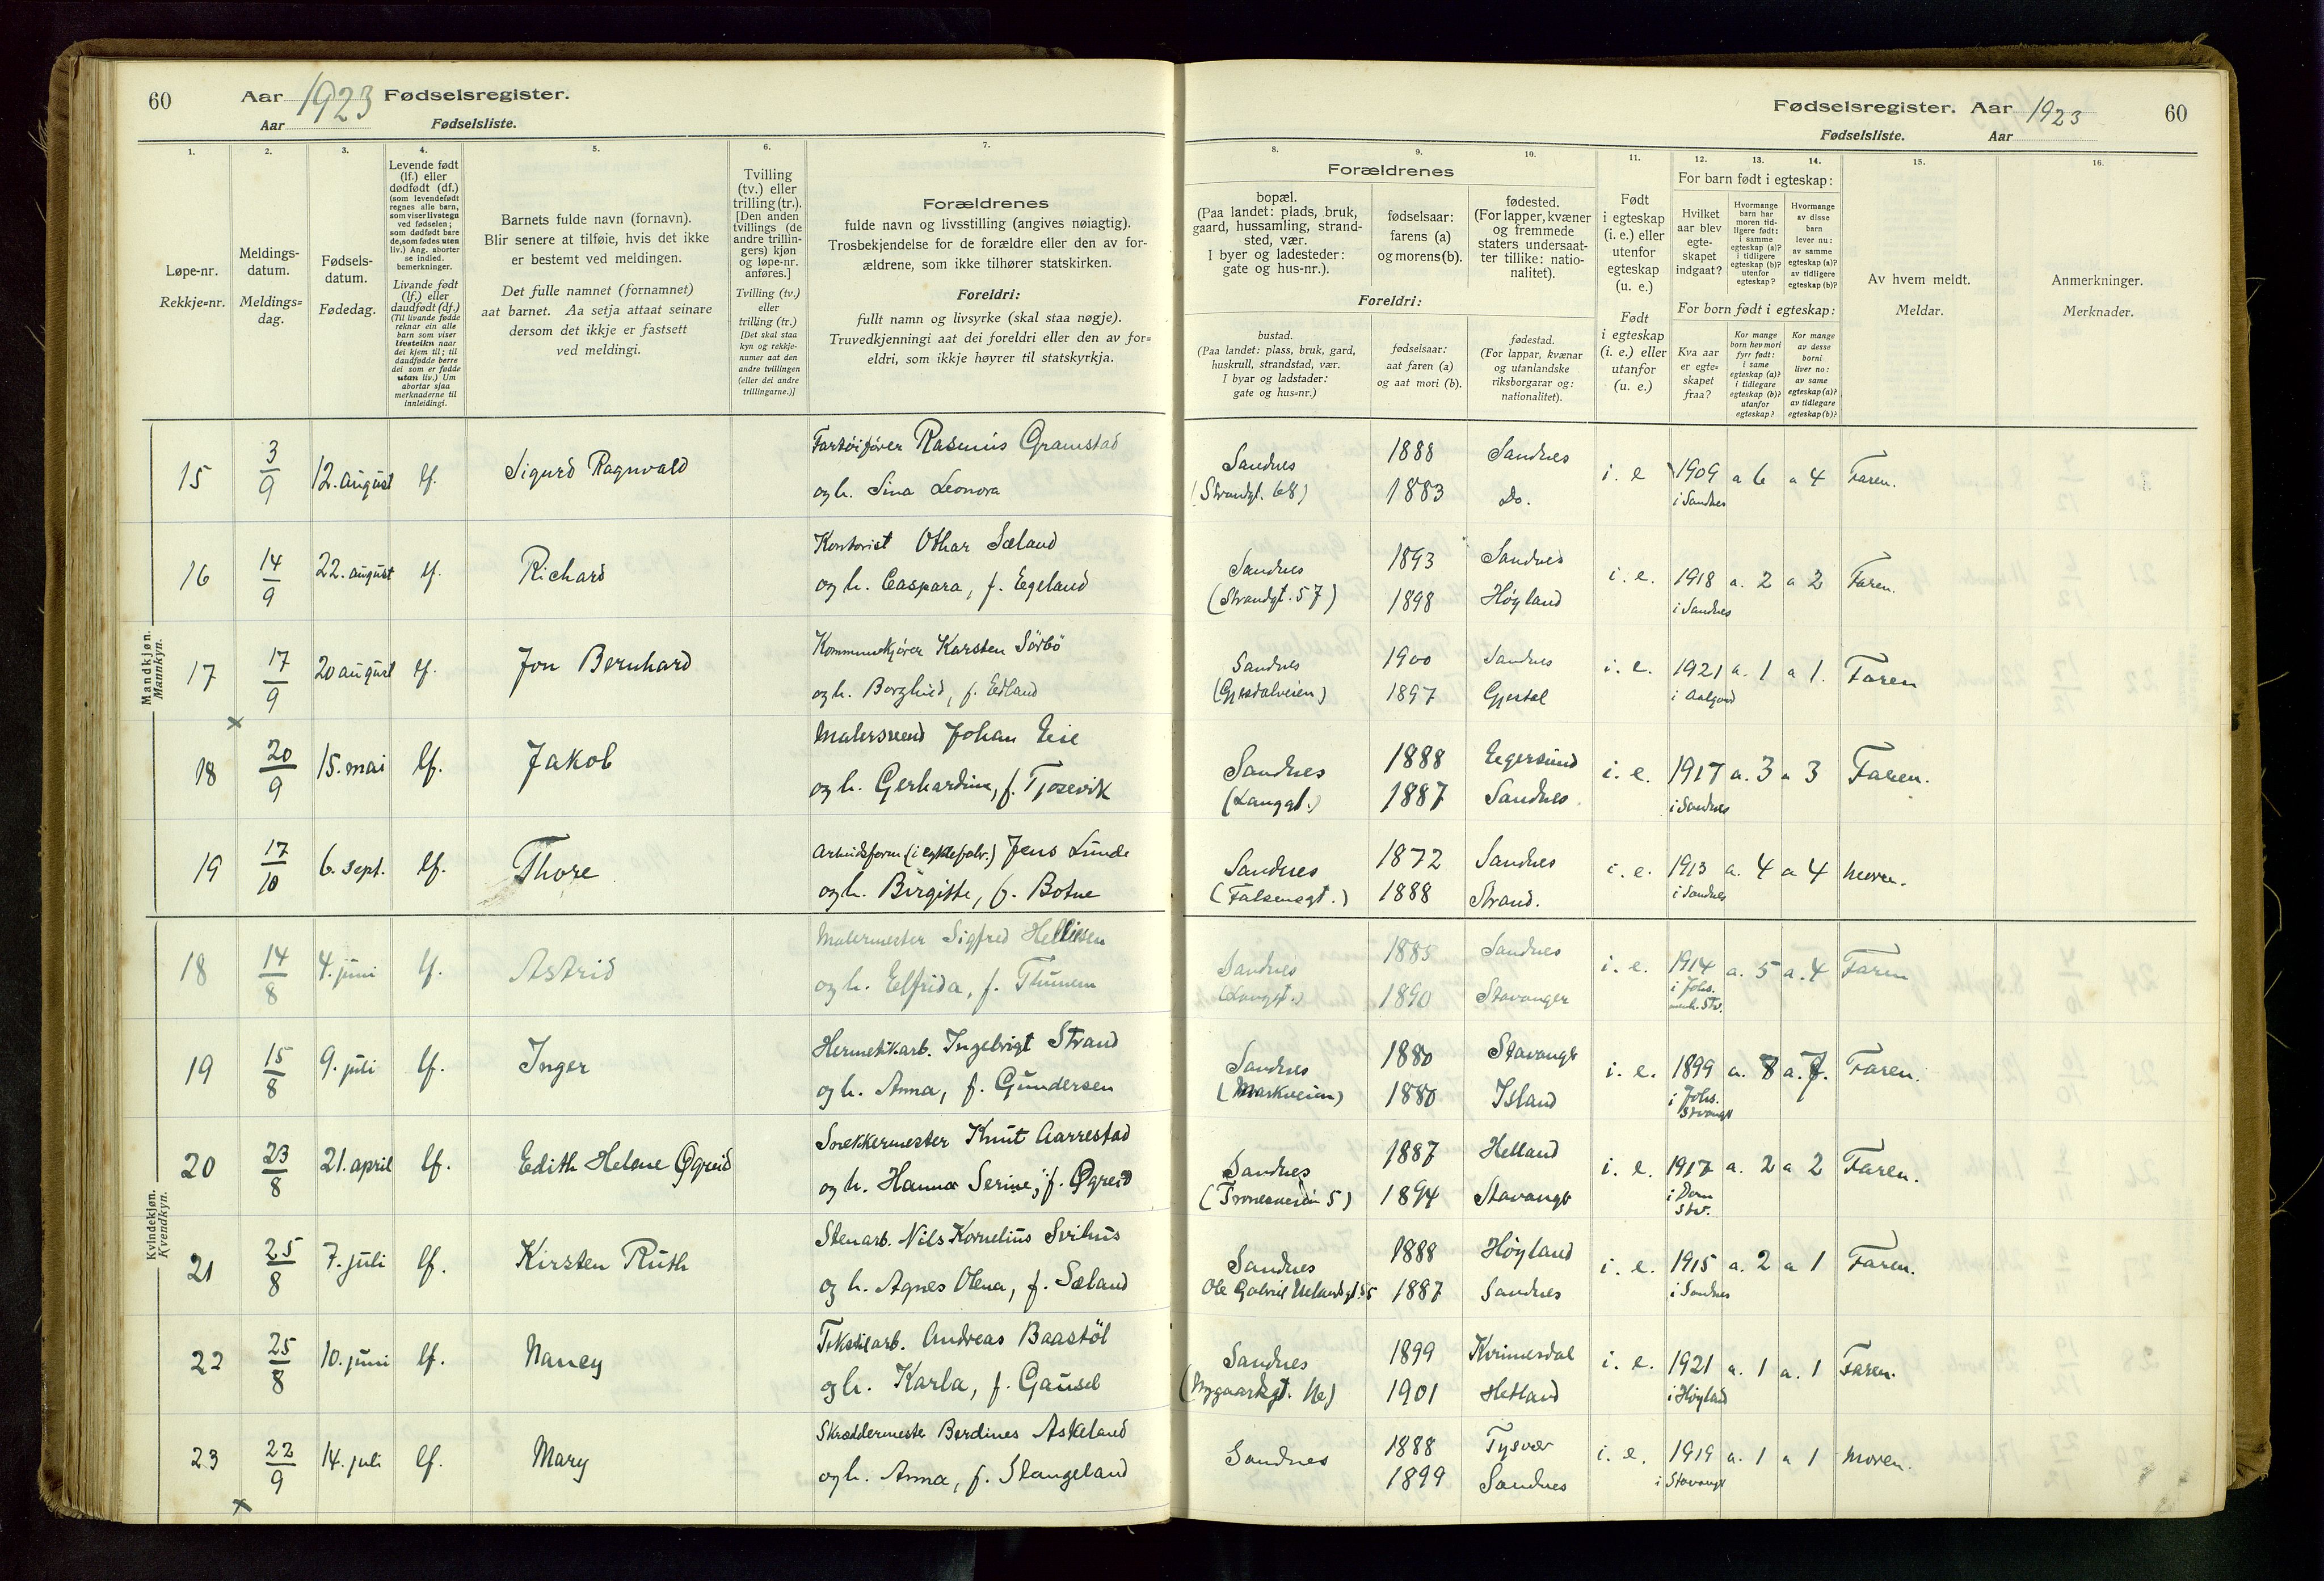 60 Aar 1923 Fødselsregister.
Aar Fødselsliste.
1. 2. 3. 4. 5. 6. 7.
Løpe-nr.
Rekkje=nr.
Meldings-
datum.
Meldings=
dag.
Fødsels-
datum.
Fødedag.
Levende født
(lf.) eller
dødfødt (df.)
(som levendefødt
regnes alle barn,
som viser livstegn
ved fødselen;
som dødfødt bare
de, som fødes uten
liv.) Ang. aborter
se indled.
bemerkninger.
Livande født
(lf.) eller
daudfødt (df.)
(Til livande fødde
reknar ein alle
barn som viser
livsteikn naar
dei kjem til; til
daudfødde berre
dei som er fødde
utan liv.) Um
abortar sjaa
merknaderne til
innleidingi.
Barnets fulde navn (fornavn).
Blir senere at tilføie, hvis det ikke
er bestemt ved meldingen.
Det fulle namnet (fornamnet)
aat barnet. Aa setja attaat seinare
dersom det ikkje er fastsett
ved meldingi.
Tvilling
(tv.) eller
trilling (tr.).
[Den anden
tvillings (de
andre trillin-
gers) kjøn
og løpe-nr.
anføres.]
Tvilling (tv.)
eller
trilling (tr.)
[Det skal staa
kyn og rekkje-
numer aat den
andre tvillingen
(eller dei andre
trillingarne.)]
Forældrenes
fulde navn og livsstilling (angives nøiagtig).
Trosbekjendelse for de forældre eller den av for-
ældrene, som ikke tilhører statskirken.
Foreldri:
fullt namn og livsyrke (skal staa nøgje).
Truvedkjenningi aat dei foreldri eller den av for=
eldri, som ikkje høyrer til statskyrkja.
Fødselsregister. Aar 1923 60
Fødselsliste. Aar
8. 9. 10. 11. 12. 13. 14. 15. 16.
Forældrenes
bopæl.
(Paa landet: plads, bruk,
gaard, hussamling, strand-
sted, vær.
I byer og ladesteder:
gate og hus-nr.).
fødselsaar:
farens (a)
og morens (b).
fødested.
(For lapper, kvæner
og fremmede
staters undersaat-
ter tillike: natio-
nalitet).
Foreldri:
bustad.
(Paa landet: plass, bruk, gard,
huskrull, strandstad, vær.
I byar og ladstader:
gate og hus=nr.)
fødselsaar:
aat faren (a)
og aat mori (b).
fødestad.
(For lappar, kvænar
og utanlandske
riksborgarar og:
nationalitet).
Født
i egteskap
(i. e.) eller
utenfor
egteskap
(u. e.)
Født
i egteskap
(i. e.) eller
utanfor
(u. e.)
For barn født i egteskap:
Hvilket
aar blev
egte-
skapet
indgaat?
Hvormange
barn har
moren tid-
ligere født:
i samme
egteskap (a)?
i tidligere
egteskap (b)?
utenfor
egteskap?
Hvormange
av disse
barn
lever nu:
av samme
egteskap (a)?
av tidligere
egteskap (b)?
For born født i egteskap:
Kva aar
er egte=
skapet
fraa?
Kor mange
born hev mori
fyrr født:
i same
egteskap (a)?
i tidlegare
egteskap (b)?
utanfor
egteskap?
Kor mange
av desse
borni
liver no:
av same
egteskap (a)?
av tidlegare
egteskap (b)?
Av hvem meldt.
Meldar.
Anmerkninger.
Merknader.
Mandkjøn.
Mannkyn.
15 3/9 12. august lf. Sigurd Ragnvald Fartøifører Rasmus Gramstad Sandnes 1888 Sandnes i. e 1909 a 6 a 4 Faren.
og h. Sina Leonora (Strandgt. 68) 1883 Do. i Sandnes
16 14/9 22. august lf. Richard Kontorist Othar Sæland Sandnes 1893 Sandnes i. e. 1918 a. 2 a 2 Faren.
og h. Caspara, f. Eegeland (Strandgt. 57) 1898 Høyland i Sandnes
17 17/9 20 august lf. Jon Bernhard Kommunekjører Karsten Sörbö Sandnes 1900 Sandnes i. e. 1921 a. 1 a 1. Faren
og h. Borghild, f. Edland (Gjesdalveien) 1897 Gjestal i Aalgaard
×
18 20/9 15. mai lf. Jakob Malersvend Johan Eie Sandnes 1888 Egersund i. e. 1917 a. 3 a 3 Faren.
og h. Gerhardine, f. Tjosevik (Langgt.) 1887 Sandnes i Sandnes
19 17/10 6. sept. lf. Thore Arbeidsform (i cyklefabr.) Jens Lunde Sandnes 1872 Sandnes i. e. 1913 a. 4 a 4 Moren.
og h. Birgitte, f. Botne (Falsensgt.) 1888 Strand. i Sandnes
Kvindekjøn.
Kvendkyn.
18 14/8 4. juni lf. Astrid Malermester Sigfred Helliesen Sandnes 1885 Sandnes i. e. 1914 a. 5 a. 4 Faren
og h. Elfrida, f. Thunem (Langgt.) 1890 Stavanger i Johs.
menh. Stv.
19 15/8 9. juli lf. Inger Hermetikarb. Ingebrigt Strand Sandnes 1880 Stavangr i. e. 1899 a. 8 a. 7. Faren.
og h. Anna, f. Gundersen (Markveien) 1880 Island i Johs.
Stvangr
20 23/8 21. april lf. Edith Helene Øgreid Snekkermester Knut Aarrestad Sandnes 1887 Helland i. e. 1917 a. 2 a 2 Faren.
og h. Hanna Serine, f. Øgreid (Tronesveien 5) 1894 Stavangr i Dom
Stv.
21 25/8 7. juli lf. Kirsten Ruth Stenarb. Nils Kornelius Svihus Sandnes 1888 Høyland i. e. 1915 a. 2 a 1 Faren.
og h. Agnes Olena, f. Sæland Ole Gabriel Uelandsgt. 55 1887 Sandnes i Sandnes
22 25/8 10. juni lf. Nancy Tekstilarb. Andreas Baastöl Sandnes 1899 Kvinesdal i. e. 1921 a. 1 a. 1 Faren.
og h. Karla, f. Gausel (Nygaardsgt.) 1901 Hetland i Høyland
23 22/9 14. juli lf. Mary Skræddermester Berdines Askeland Sandnes 1888 Tysvær i. e. 1919 a. 1 a 1 Moren.
og h. Anna, f. Stangeland 1899 Sandnes i Stavangr
×